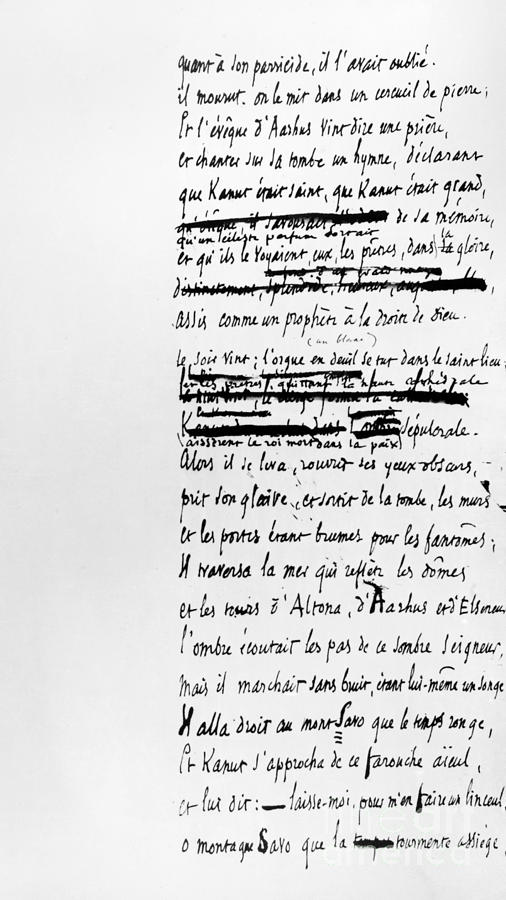 quant à son parricide, il l'avait oublié.
il mourut. on le mit dans un cercueil de pierre ;
Et l'évêque d'Aarhus vint dire une prière,
et chanter sur sa tombe un hymne, déclarant
que Kanut était saint, que Kanut était grand,
de sa mémoire,
qu'un céleste parfum sortait
et qu'ils le voyaient, eux, les prêtres, dans la gloire,
assis comme un prophète à la droite de Dieu.
(un blanc)
Le soir vint ; l'orgue en deuil se tut dans le saint lieu ;
et les prêtres, quittant la haute cathédrale
sépulcrale.
laissèrent le roi mort dans la paix
Alors il se leva, rouvrit ses yeux obscurs,
prit son glaive, et sortit de la tombe, les murs
et les portes étant brumes pour les fantômes ;
Il traversa la mer qui reflète les dômes
et les tours d'Altona, d'Aarhus et d'Elseneur
l'ombre écoutait les pas de ce sombre seigneur,
Mais il marchait sans bruit, étant lui-même un songe
Il alla droit au mont Savo que le temps ronge,
Et Kanut s'approcha de ce farouche aïeul,
et lui dit : — laisse-moi, pour m'en faire un linceul
o montagne Savo que la tourmente assiège